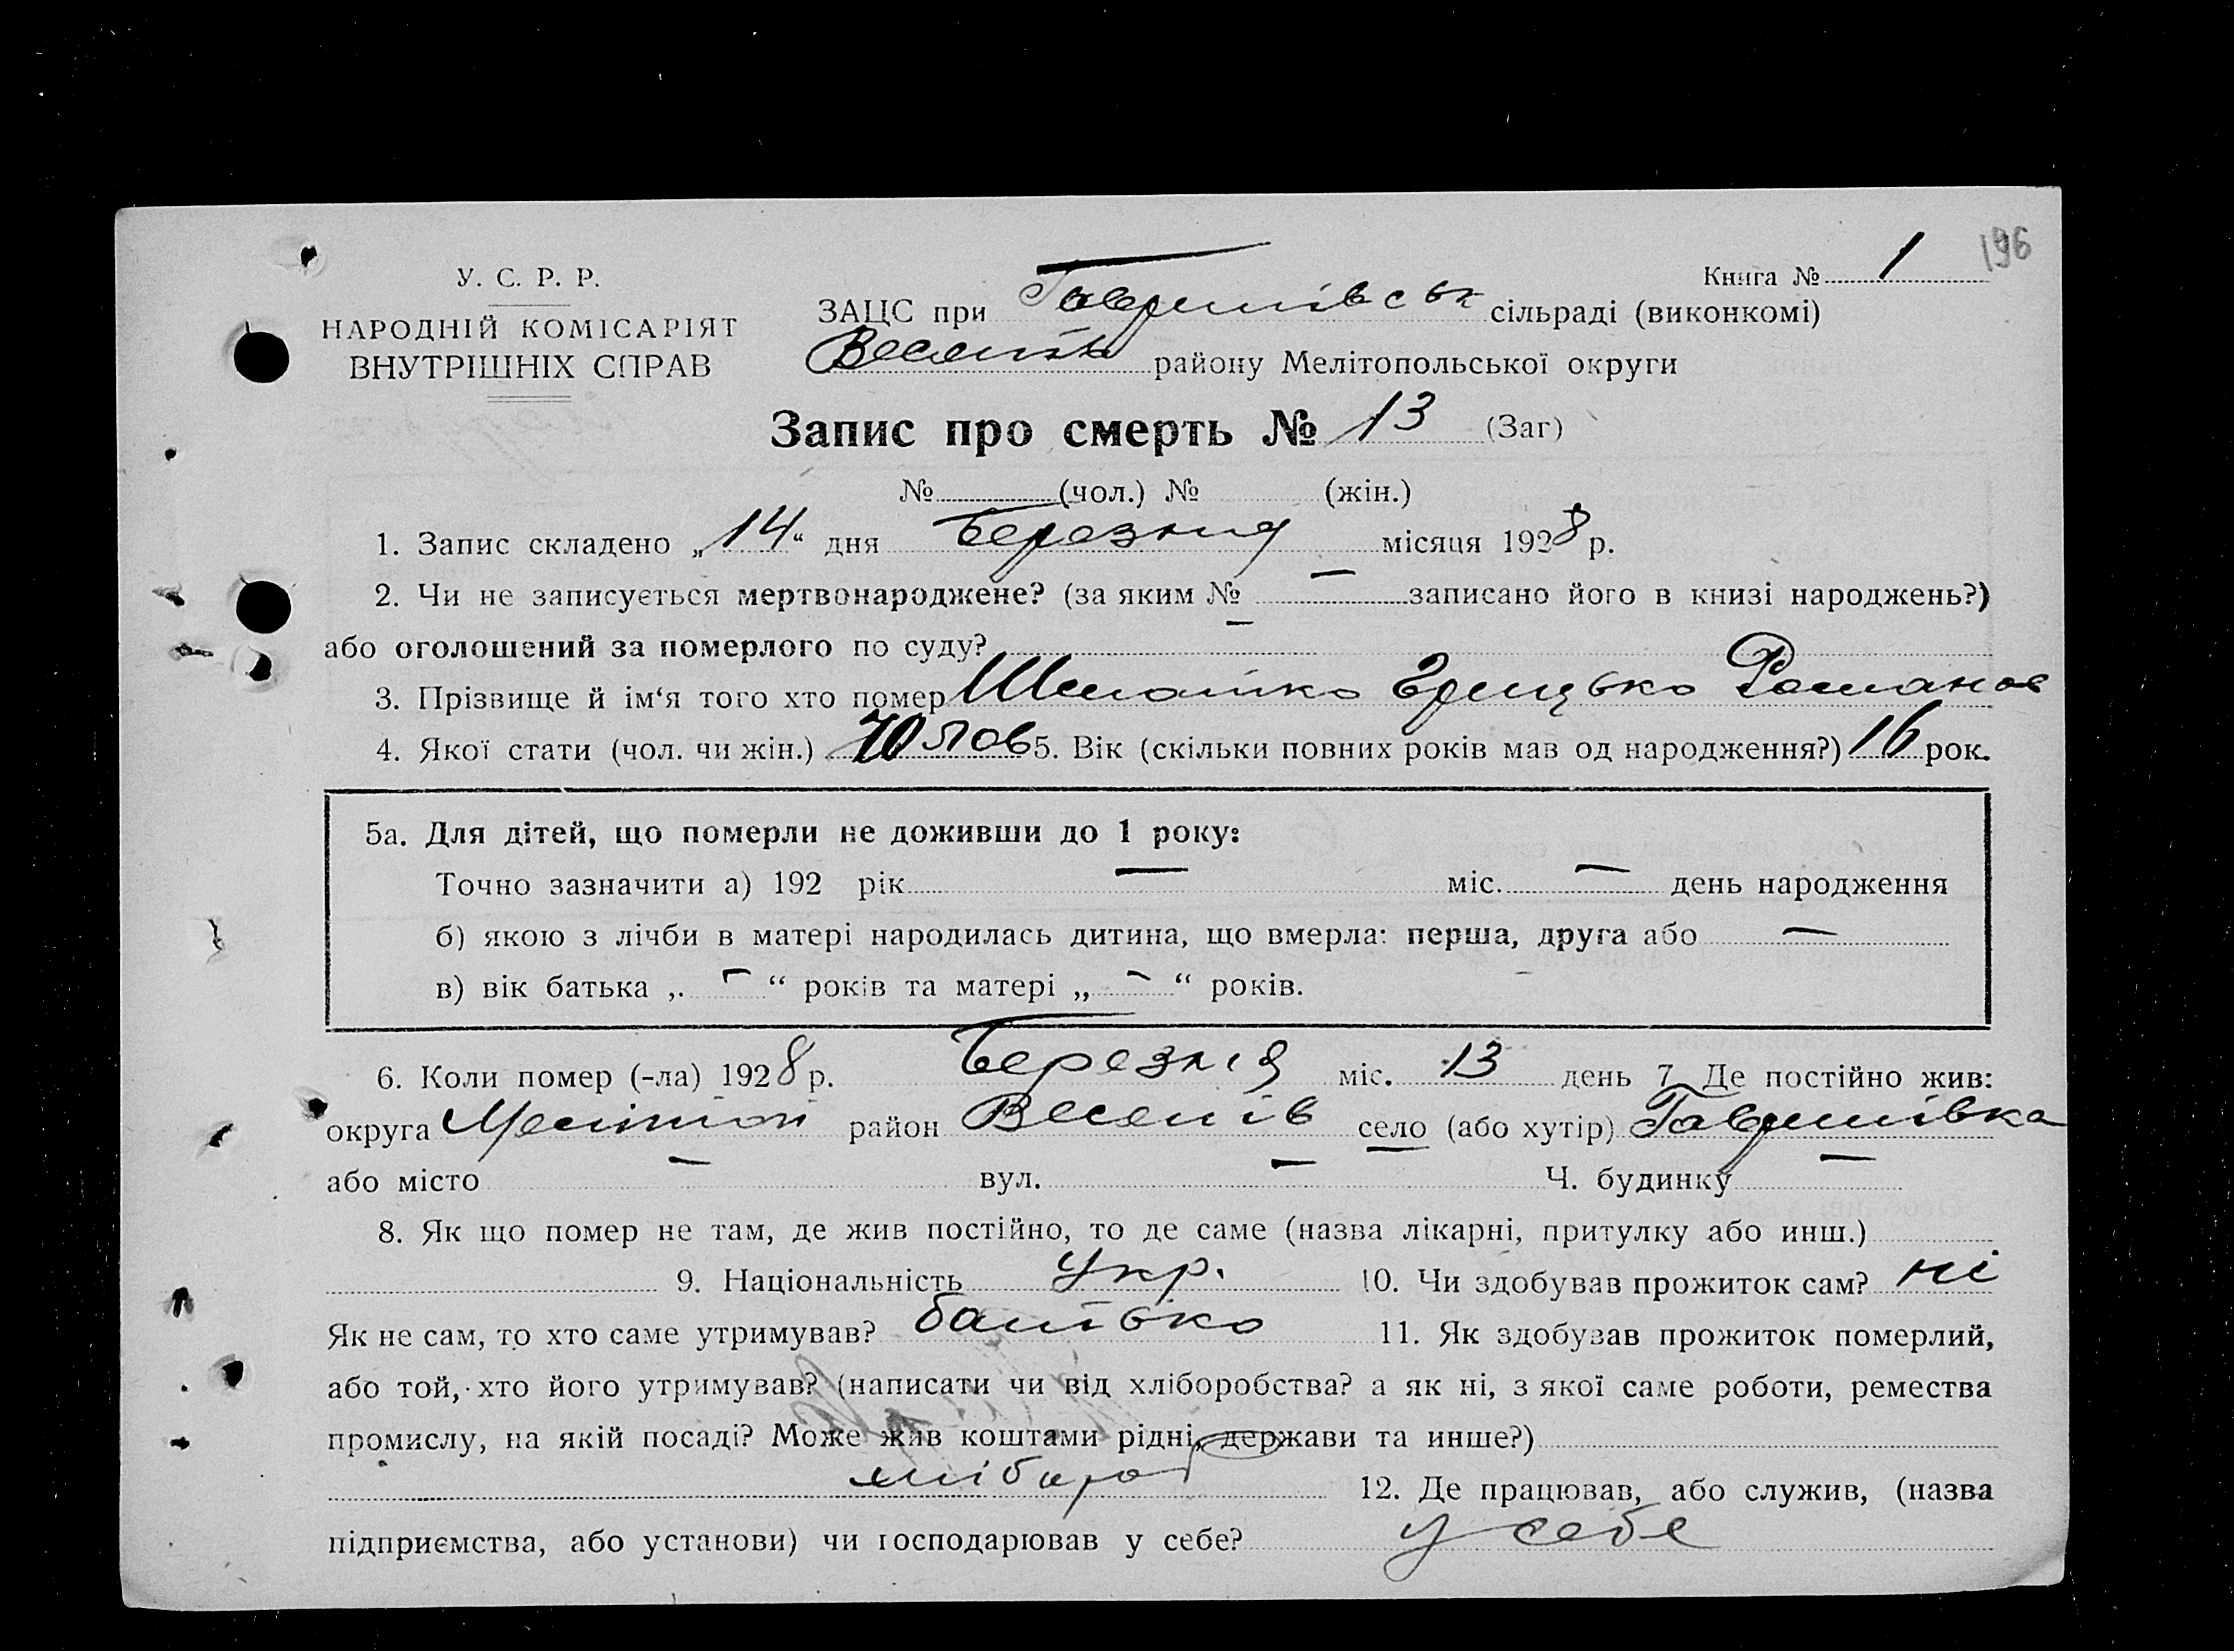 196
У. С. Р. Р.
НАРОДНІЙ КОМІСАРІЯТ
ВНУТРІШНІХ СПРАВ
Книга № 1
ЗАЦС при Гаврилівськ сільраді (виконкомі)
району Мелітопольської округи
Запис про смерть № 13 (Заг)
№ (чол.) № (жін.)
1. Запис складено „14“ дня Березня місяця 1928 р.
2. Чи не записується мертвонароджене? (за яким № — записано його в книзі народжень?)
або оголошений за померлого по суду? —
3. Прізвище й ім‘я того хто помер Грицько Романов
4. Якої стати (чол. чи жін.) 5. Вік (скільки повних років мав од народження?) 16 рок.
5а. Для дітей, що померли не доживши до 1 року:
Точно зазначити а) 192 рік — міс. — день народження
б) якою з лічби в матері народилась дитина, що вмерла: перша, друга або —
в) вік батька „ — “ років та матері „ — “ років.
6. Коли помер (-ла) 1928 р. Березня міс. 13 день 7. Де постійно жив:
округа Меліт район Веселів село (або хутір) Гаврилівка
або місто — вул. — Ч. будинку —
8. Як що помер не там, де жив постійно, то де саме (назва лікарні, притулку або инш.)
9. Національність укр. 10. Чи здобував прожиток сам? ні
Як не сам, то хто саме утримував? батько 11. Як здобував прожиток померлий,
або той, хто його утримував? (написати чи від хліборобства? а як ні, з якої саме роботи, ремества
промислу, на якій посаді? Може жив коштами рідні, держави та инше?)
хлібороб 12. Де працював, або служив, (назва
підприємства, або установи) чи господарював у себе? у себе